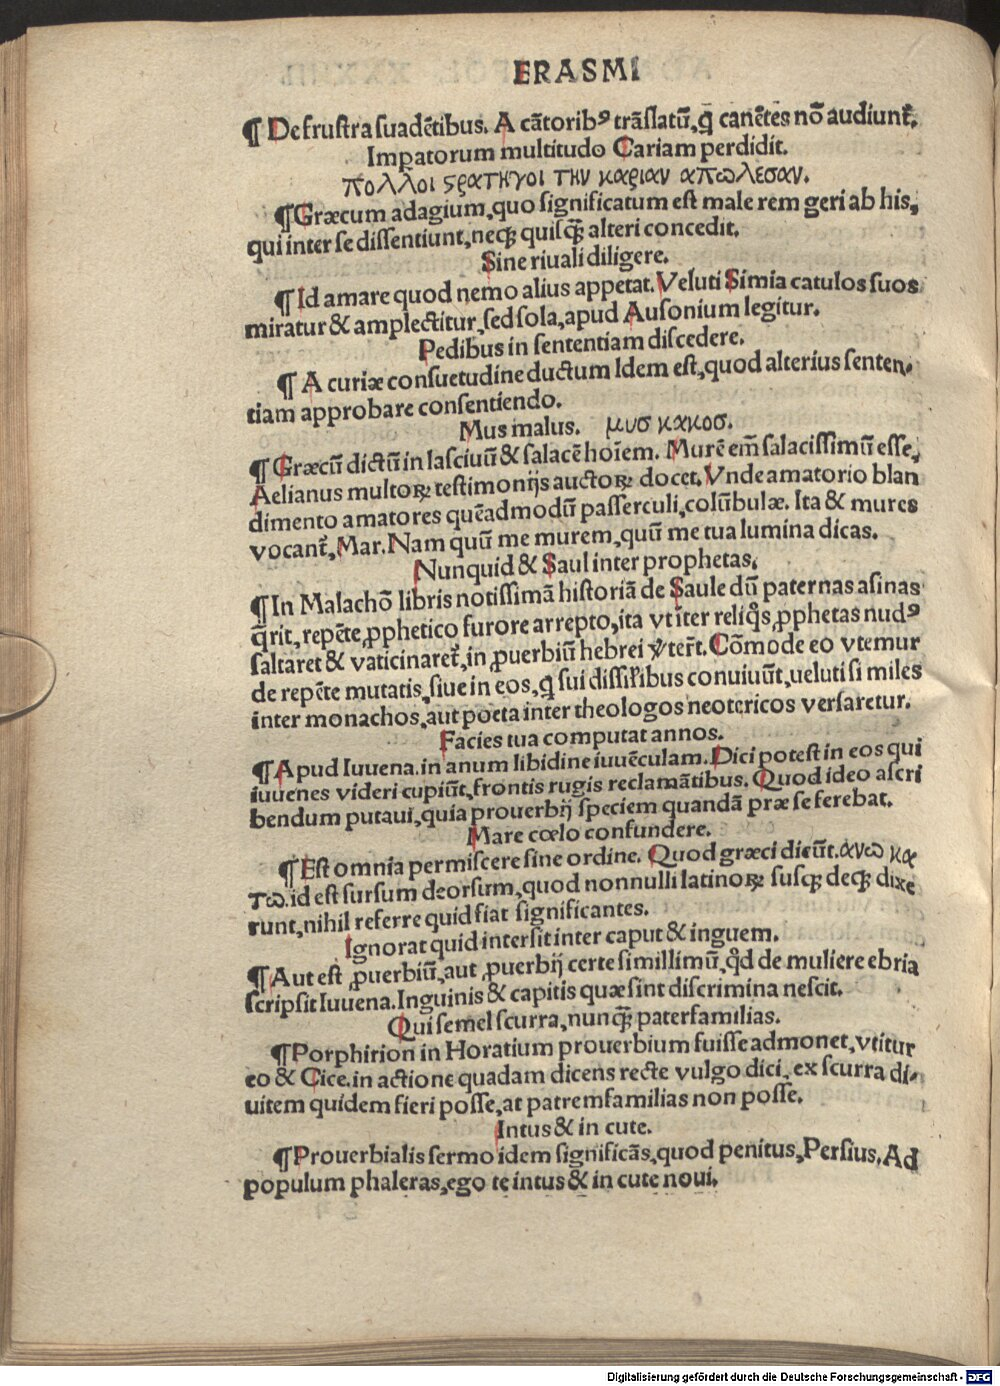 ERASMI
¶ De frustra suadētibus. A cātoribꝰ trāslatū, q̄ canētes nō audiunt᷑.
Impatorum multitudo Cariam perdidit.
πολλοι ϛρατηγοι την καριαν απωλεσαν.
¶ Græcum adagium, quo significatum est male rem geri ab his,
qui inter se dissentiunt, neqꝫ quisqꝫ̄ alteri concedit.
Sine riuali diligere.
¶ Id amare quod nemo alius appetat. Veluti Simia catulos suos
miratur & amplectitur, sed sola, apud Ausonium legitur.
Pedibus in sententiam discedere.
¶ A curiæ consuetudine ductum Idem est, quod alterius senten-
tiam approbare consentiendo.
Mus malus. μυσ κακοσ.
¶ Græcū dictū in lasciuū & salacē hoīem. Murē em̄ salacissimū esse,
Aelianus multoꝝ testimonijs auctoꝝ docet. Vnde amatorio blan
dimento amatores quēadmodū passerculi, colūbulæ. Ita & mures
vocant᷑, Mar. Nam quū me murem, quū me tua lumina dicas.
Nunquid & Saul inter prophetas.
¶ In Malachō libris notissimā historiā de Saule dū paternas asinas
q̄rit, repēte, ꝓphetico furore arrepto, ita vt īter reliq̄s, ꝓphetas nudꝰ
saltaret & vaticinaret᷑, in ꝓuerbiū hebrei v̾ter̄t. Cōmode eo vtemur
de repēte mutatis, siue in eos, q̄ sui dissil̄ibus conuiuūt, ueluti si miles
inter monachos, aut poeta inter theologos neotericos versaretur.
Facies tua computat annos.
¶ Apud Iuuena. in anum libidine iuuēculam. Dici potest in eos qui
iuuenes videri cupiūt, frontis rugis reclamātibus. Quod ideo ascri
bendum putaui, quia prouerbij speciem quandā præ se ferebat.
Mare cœlo confundere.
¶ Est omnia permiscere sine ordine. Quod græci dicūt. ανω κα
τω. id est sursum deorsum, quod nonnulli latinoꝝ susqꝫ deqꝫ dixe
runt, nihil referre quid fiat significantes.
Ignorat quid intersit inter caput & inguem.
¶ Aut est ꝓuerbiū, aut ꝓuerbij certe simillimū, qd̄ de muliere ebria
scripsit Iuuena. Inguinis & capitis quæ sint discrimina nescit.
Qui semel scurra, nunqꝫ̄ paterfamilias.
¶ Porphirion in Horatium prouerbium fuisse admonet, vtitur
eo & Cice. in actione quadam dicens recte vulgo dici, ex scurra di-
uitem quidem fieri posse, at patremfamilias non posse.
Intus & in cute.
¶ Prouerbialis sermo idem significās, quod penitus, Persius. Ad
populum phaleras, ego te intus & in cute noui.
Digitalisierung gefördert durch die Deutsche Forschungsgemeinschaft - DFG